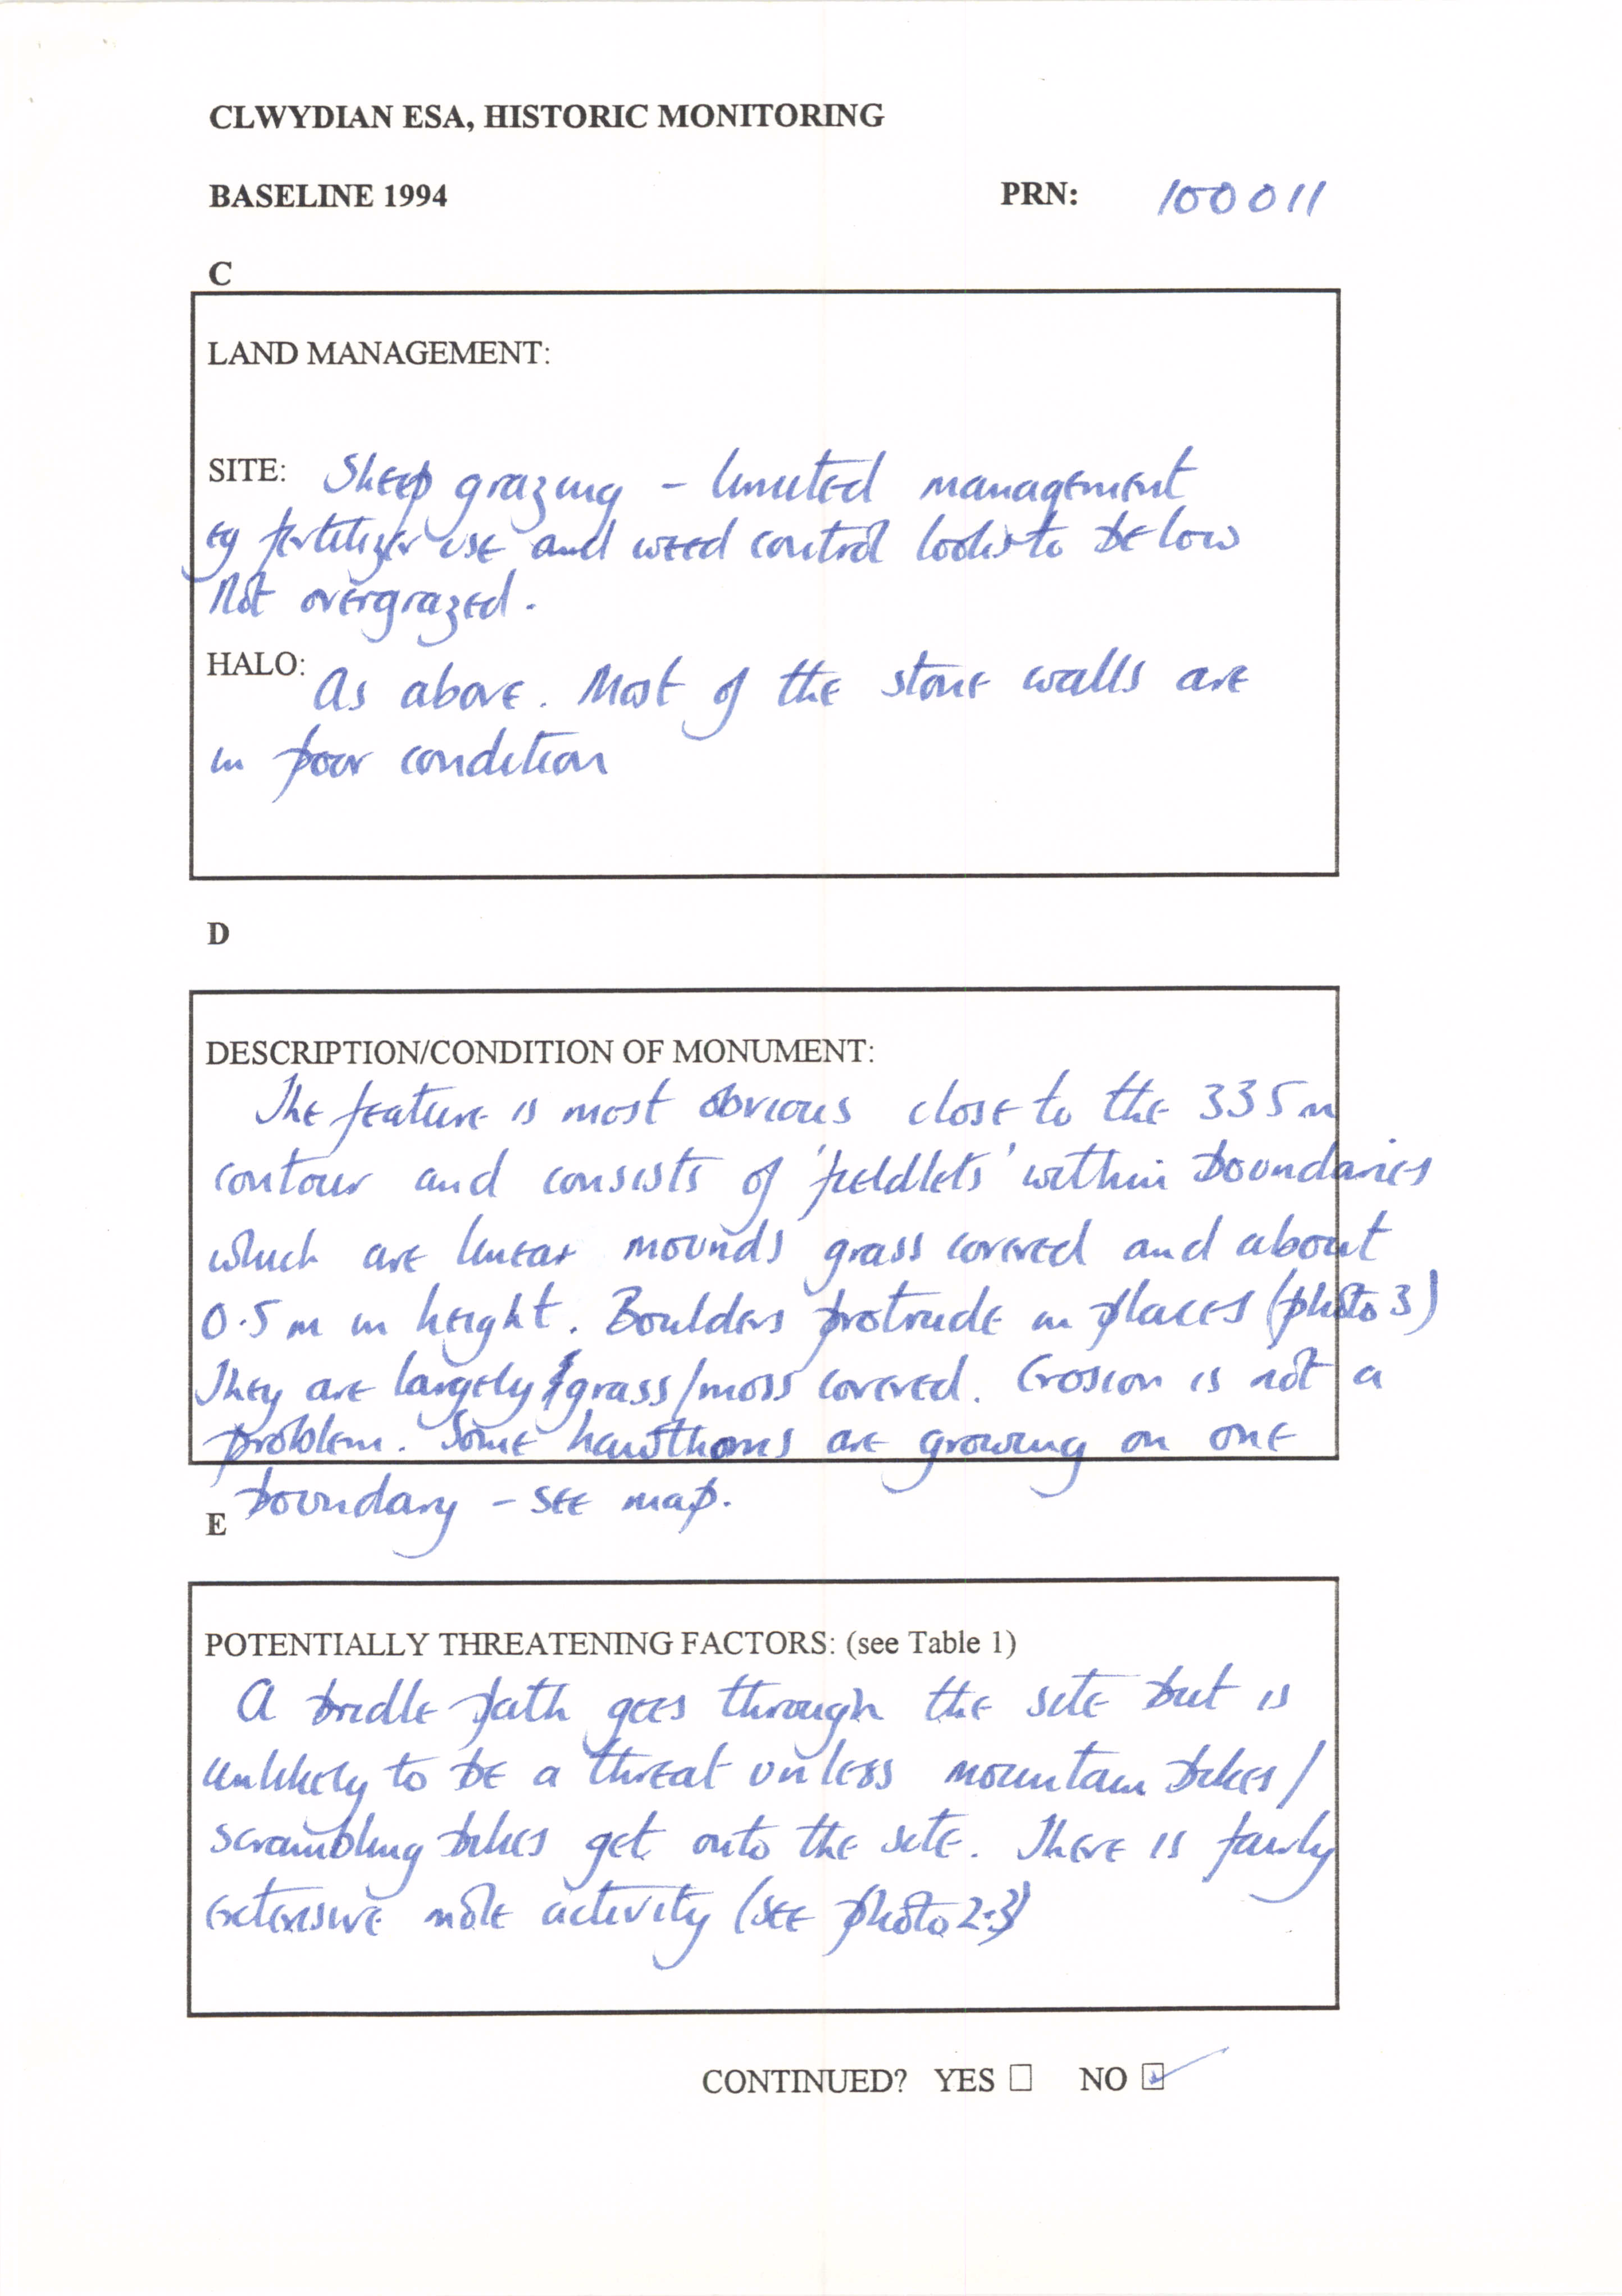 CLWYDIAN ESA, HISTORIC MONITORING
BASELINE 1994 PRN: 100011
C
LAND MANAGEMENT:
SITE: Sheep grazing - limited management
eg fertilizer use and weed control looks to be low
Not overgrazed.
HALO: As above. Most of the stone walls are
in poor condition
D
DESCRIPTION/CONDITION OF MONUMENT:
The feature is most obvious close to the 335m
contour and consists of 'fieldlets' within boundaries
which are linear mounds grass covered and about
0.5m in height. Boulders protrude in places (photo 3)
They are largely grass/moss covered. Erosion is not a
problem. Some hawthorns are growing on one
boundary - see map.
E
POTENTIALLY THREATENING FACTORS: (see Table 1)
A bridle path goes through the site but is
unlikely to be a threat unless mountain bikes/
scrambling bikes get onto the site. There is fairly
extensive mole activity (see photo 2+3)
CONTINUED? YES ☐ NO ☑